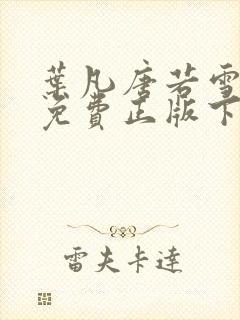 葉凡唐若雪
免費正版下
雷夫卡達